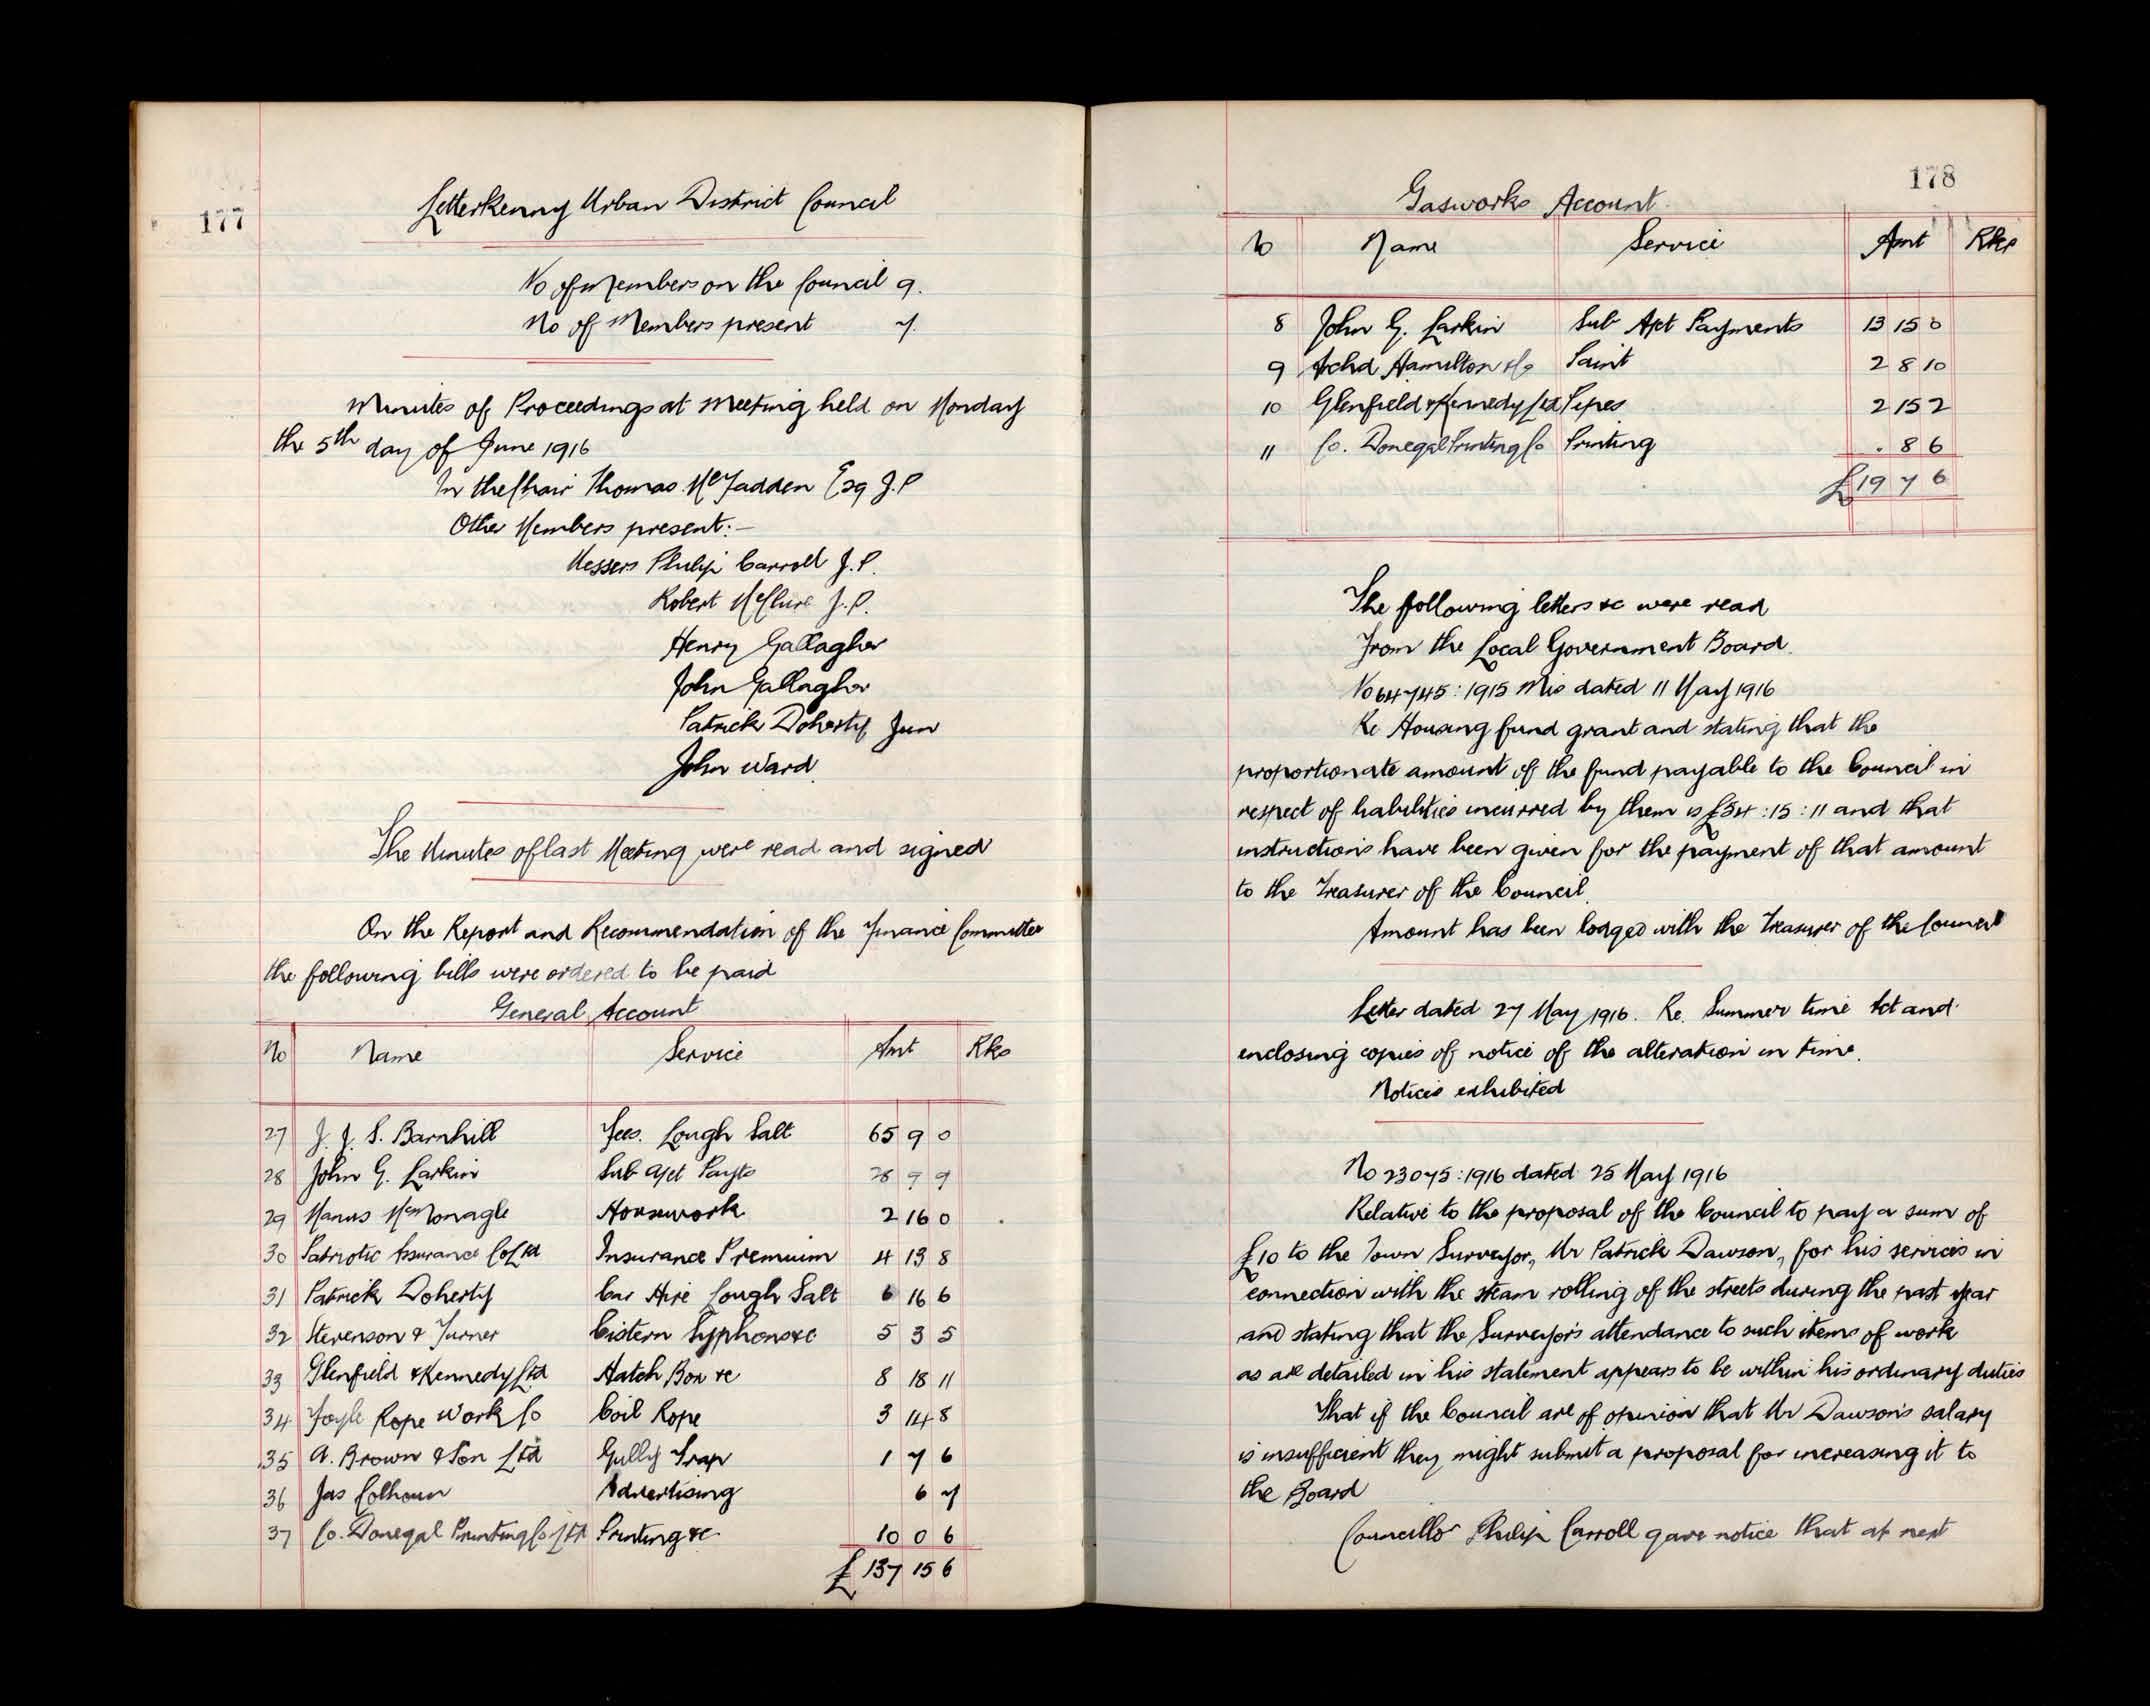 177
Letterkenny Urban District Council
No of Members on the Council 9.
No of Members present 7.
Minutes of Proceedings at Meeting held on Monday
the 5th day of June 1916
In the Chair Thomas McFadden Esq J.P
Other Members present:—
Messers Philip Carroll J.P.
Robert McClure J.P.
Henry Gallagher
John Gallagher
Patrick Doherty Jun
John Ward
The Minutes of last Meeting were read and signed
On the Report and Recommendation of the Finance Committee
the following bills were ordered to be paid
General Account
No Name Service Amt Rks
27 J. J. S. Barnhill Fees. Lough Salt 65 9 0
28 John G. Larkin Sub Apt Payts 28 9 9
29 Manus McMonagle Housework 2 16 0
30 Patriotic Assurance Co Ltd Insurance Premium 4 13 8
31 Patrick Doherty Car Hire Lough Salt 6 16 6
32 Stevenson & Turner Cistern Syphons &c 5 3 5
33 Glenfield & Kennedy Ltd Hatch Box &c 8 18 11
34 Foyle Rope Work Co Coil Rope 3 14 8
35 A. Brown & Son Ltd Gully Trap 1 7 6
36 Jas Colhoun Advertising 6 7
37 Co. Donegal Printing Co Ltd Printing &c 10 0 6
£ 137 15 6
178
Gasworks Account
No Name Service Amt Rks
8 John G. Larkin Sub Apt Payments 13 15 0
9 Archd Hamilton & Co Paint 2 8 10
10 Glenfield & Kennedy Ltd Pipes 2 15 2
11 Co. Donegal Printing Co Printing . 8 6
£ 19 7 6
The following letters &c were read
From the Local Government Board.
No 64745:1915 Mis dated 11 May 1916
Re Housing fund grant and stating that the
proportionate amount of the fund payable to the Council in
respect of liabilities incurred by them is £54:15:11 and that
instructions have been given for the payment of that amount
to the Treasurer of the Council.
Amount has been lodged with the Treasurer of the Council
Letter dated 27 May 1916. Re. Summer time Act and
enclosing copies of notice of the alteration in time.
Notices exhibited
No 23075:1916 dated 25 May 1916
Relative to the proposal of the Council to pay a sum of
£10 to the Town Surveyor, Mr Patrick Dawson, for his services in
connection with the steam rolling of the streets during the past year
and stating that the Surveyor's attendance to such items of work
as are detailed in his statement appears to be within his ordinary duties
That if the Council are of opinion that Mr Dawson's salary
is insufficient they might submit a proposal for increasing it to
the Board
Councillor Philip Carroll gave notice that at next